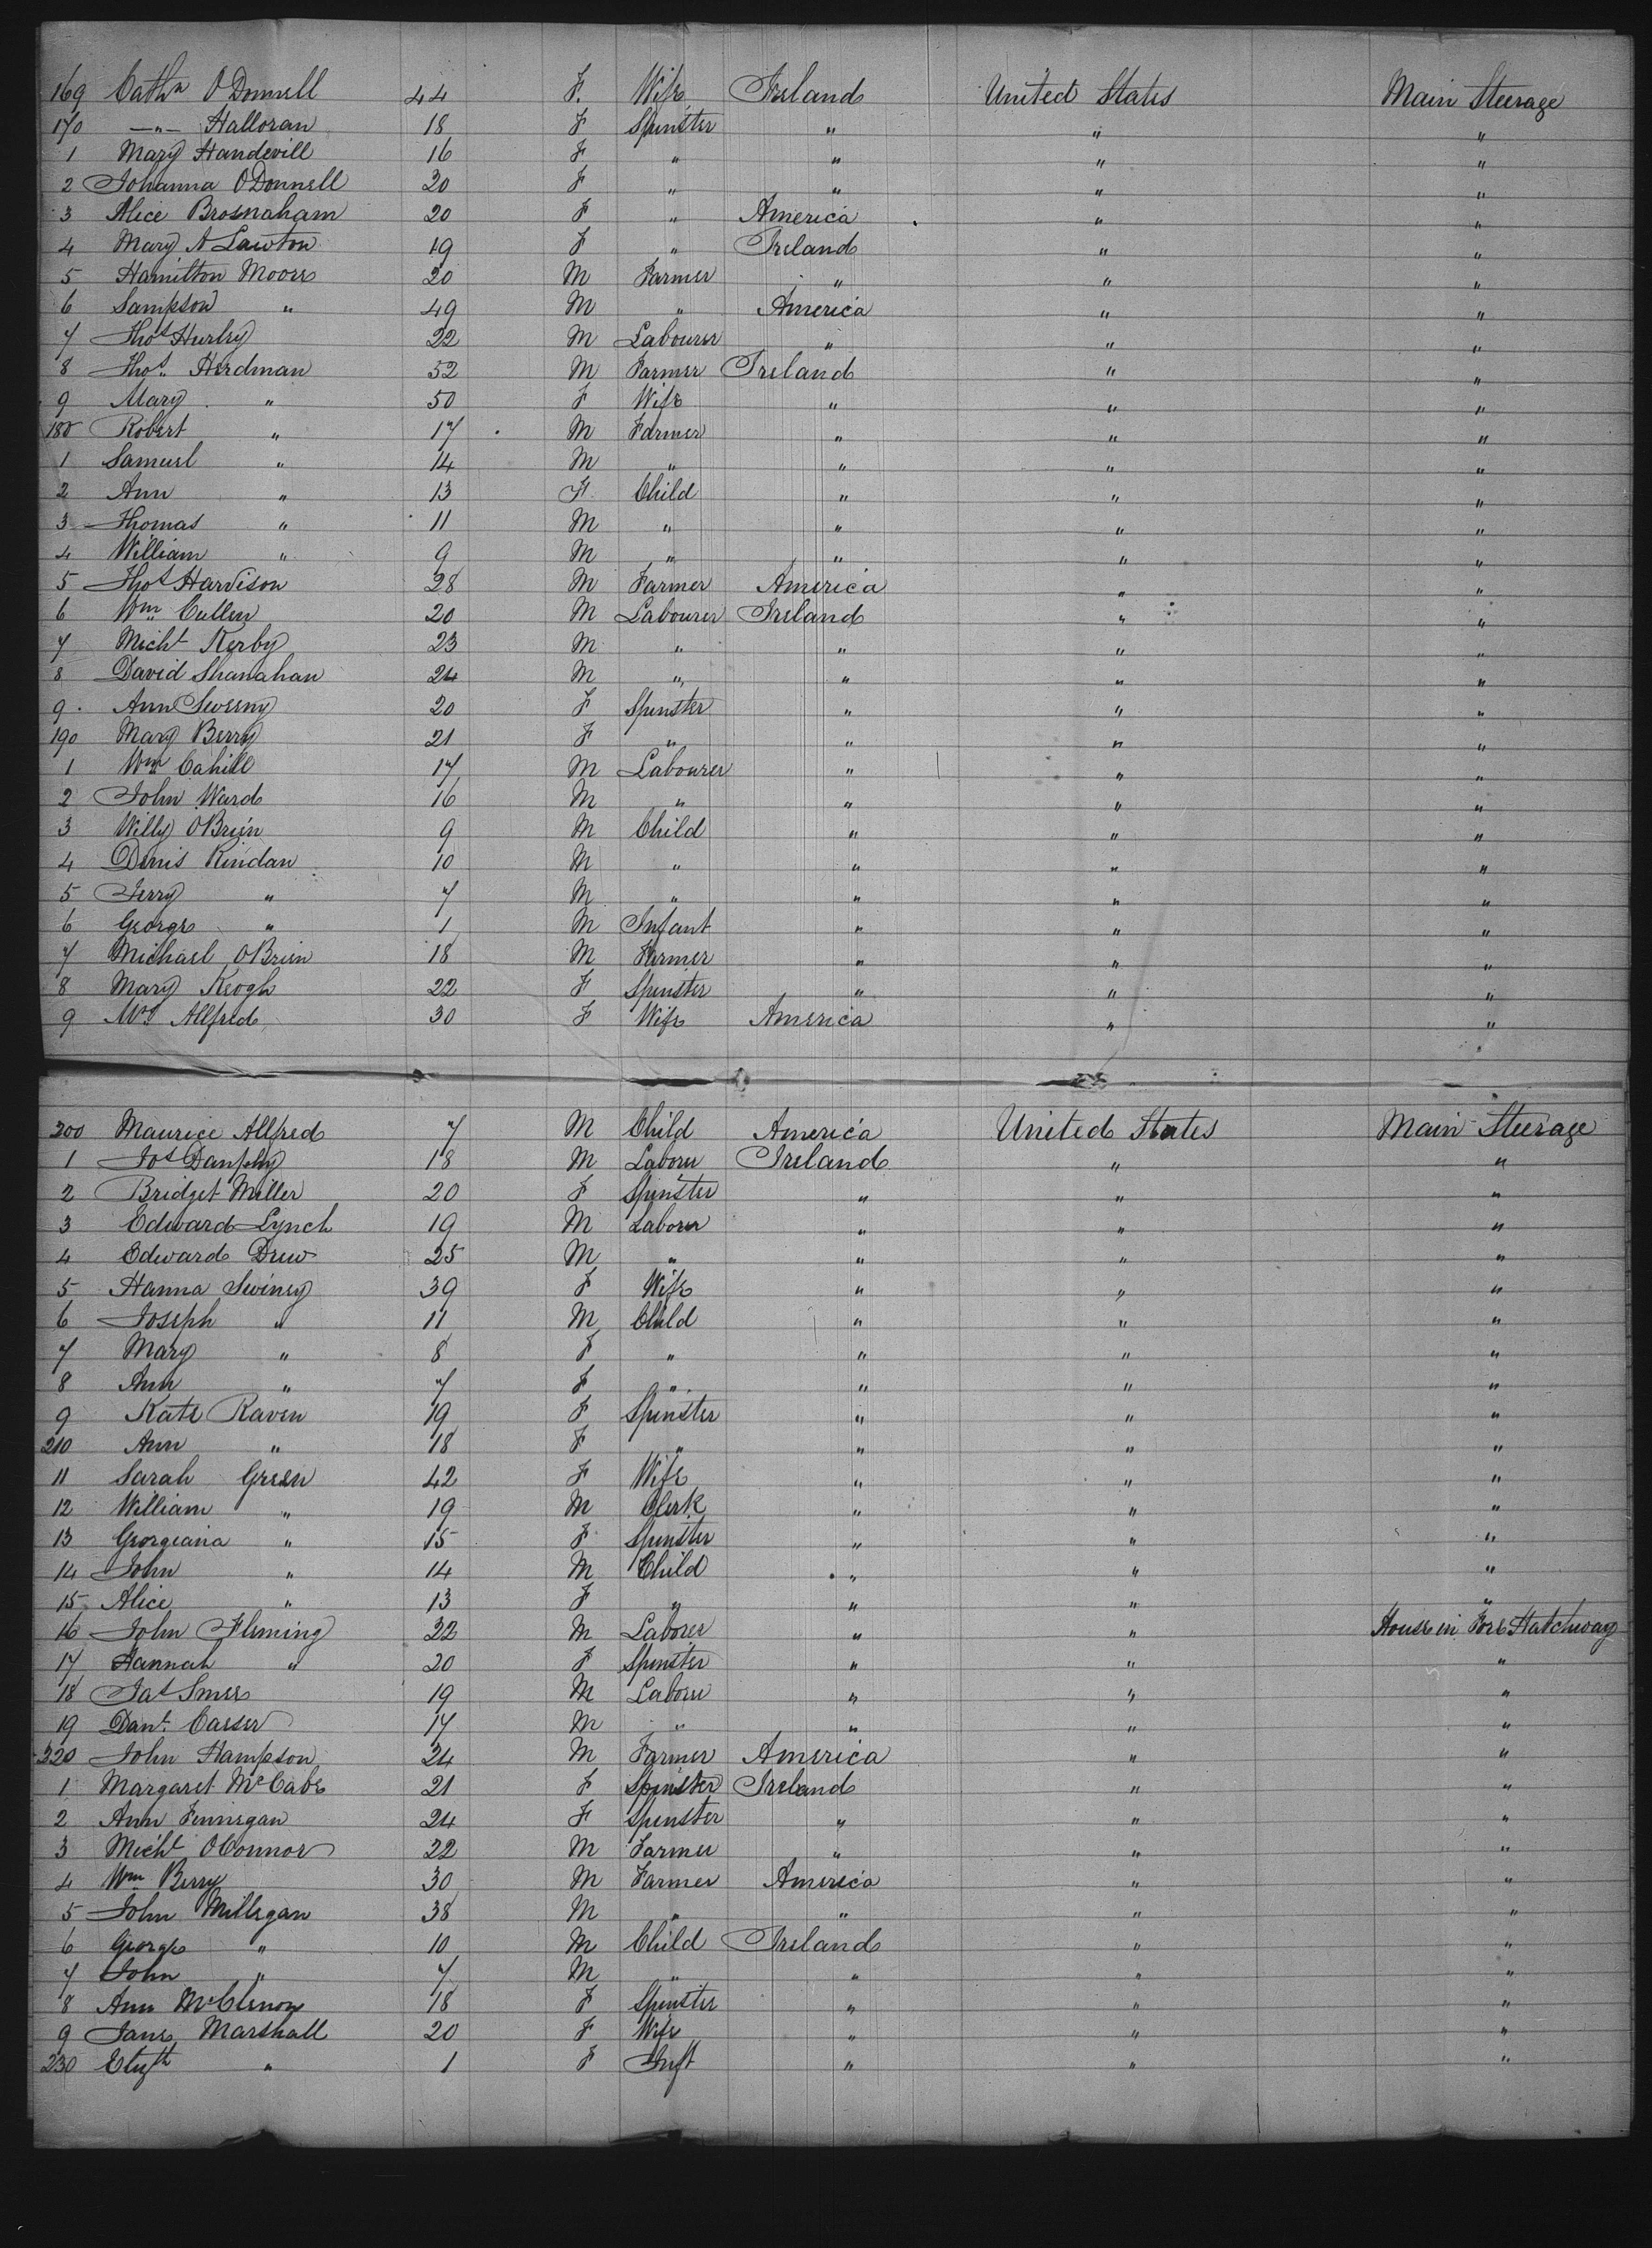 169 Cathn O Donnell 44 F. Wife Ireland United States Main Steerage
170 —"— Halloran 18 F Spinster " " "
1 Mary Handevill 16 F " " " "
2 Johanna O Donnell 20 F " " " "
3 Alice Brosnaham 20 F " America " "
4 Mary A Lawton 19 F " Ireland " "
5 Hamilton Moore 20 M Farmer " " "
6 Sampson " 49 M " America " "
7 Thos Hurley 22 M Labourer " " "
8 Thos. Herdman 52 M Farmer Ireland " "
9 Mary " 50 F Wife " " "
180 Robert " 17 M Farmer " " "
1 Samuel " 14 M " " " "
2 Ann " 13 F Child " " "
3 Thomas " 11 M " " " "
4 William " 9 M " " " "
5 Thos Hardison 28 M Farmer America " "
6 Wm Cullen 20 M Labourer Ireland " "
7 Michl Kerby 23 M " " " "
8 David Shanahan 24 M " " " "
9 Ann Sweeny 20 F Spinster " " "
190 Mary Berry 21 F " " " "
1 Wm Cahill 17 M Labourer " " "
2 John Ward 16 M " " " "
3 Willy OBrien 9 M Child " " "
4 Denis Rindan 10 M " " " "
5 Jerry " 7 M " " " "
6 George " 1 M Infant " " "
7 Michael OBrien 18 M Farmer " " "
8 Mary Keogh 22 F Spinster " " "
9 Mrs Allfred 30 F Wife America " "
200 Maurice Allfred 7 M Child America United States Main Steerage
1 Jos Dunphy 18 M Laborer Ireland " "
2 Bridget Miller 20 F Spinster " " "
3 Edward Lynch 19 M Laborer " " "
4 Edward Drew 25 M " " " "
5 Hanna Swiney 39 F Wife " " "
6 Joseph " 11 M Child " " "
7 Mary " 8 F " " " "
8 Ann " 7 F " " " "
9 Kate Raven 19 F Spinster " " "
210 Ann " 18 F " " " "
11 Sarah Green 42 F Wife " " "
12 William " 19 M Clerk " " "
13 Georgeana " 15 F Spinster " " "
14 John " 14 M Child " " "
15 Alice " 13 F " " " "
16 John Fleming 22 M Laborer " " House in Fore Hatchway
17 Hannah " 20 F Spinster " " "
18 Jas Smee 19 M Laborer " " "
19 Danl. Casser 17 M " " " "
220 John Hampson 24 M Farmer America " "
1 Margaret McCabe 21 F Spinster Ireland " "
2 Ann Finnegan 24 F Spinster " " "
3 Michl OConnor 22 M Farmer " " "
4 Wm Berry 30 M Farmer America " "
5 John Millegan 38 M " " " "
6 George " 10 M Child Ireland " "
7 John " 7 M " " " "
8 Ann McClenon 18 F Spinster " " "
9 Jane Marshall 20 F Wife " " "
230 " 1 F Inft " " "